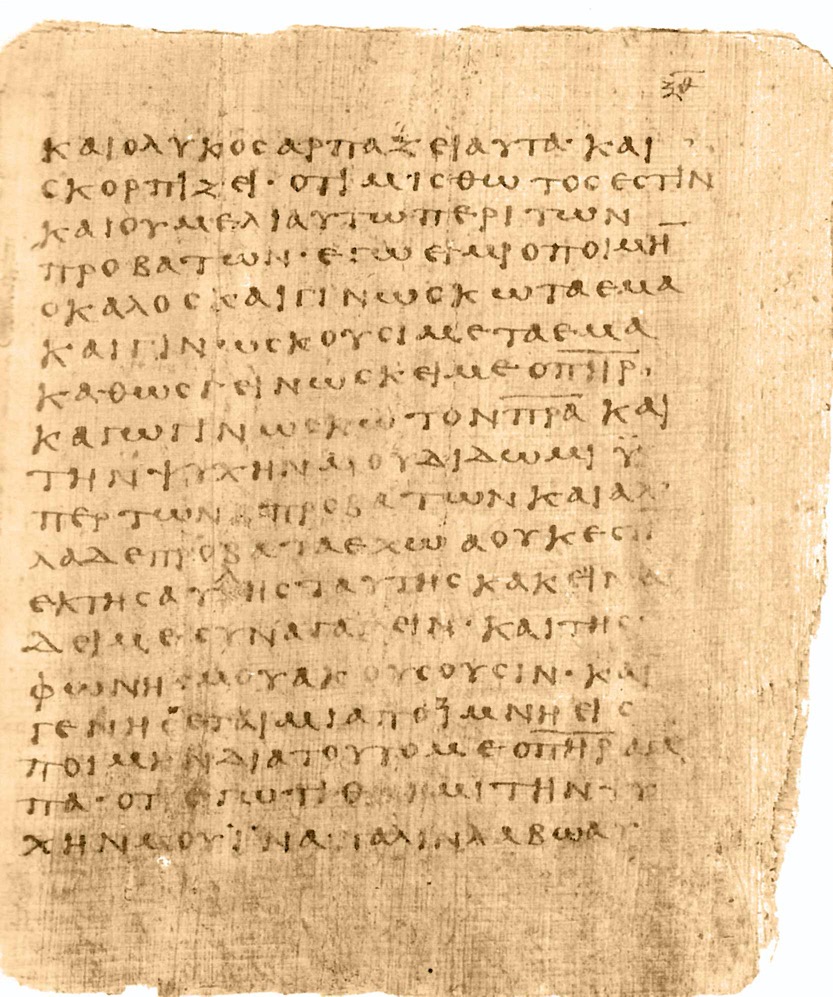 ξθ
ΚΑΙΟΛΥΚΟСΑΡΠΑΖΕΙΑΥΤΑ· ΚΑΙ
СΚΟΡΠΙΖΕΙ· ΟΤΙΜΙСΘΩΤΟСΕСΤΙΝ
ΚΑΙΟΥΜΕΛΙΑΥΤΩΠΕΡΙΤΩΝ
ΠΡΟΒΑΤΩΝ· ΕΓΩΕΙΜΙΟΠΟΙΜΗ̅
ΟΚΑΛΟСΚΑΙΓΙΝΩСΚΩΤΑΕΜΑ
ΚΑΙΓΙΝΩСΚΟΥСΙΜΕΤΑΕΜΑ
ΚΑΘΩСΓΕΙΝΩСΚΕΙΜΕΟΠ̅Η̅Ρ̅
ΚΑΓΩΓΙΝΩСΚΩΤΟΝΠ̅Ρ̅Α̅ ΚΑΙ
ΤΗΝΨΥΧΗΝΜΟΥΔΙΔΩΜΙΫ
ΠΕΡΤΩΝΠΡΟΒΑΤΩΝΚΑΙΑΛ
ΛΑΔΕΠΡΟΒΑΤΑΕΧΩΑΟΥΚΕСΤΙ
ΕΚΤΗСΑΥΛΗСΤΑΥΤΗСΚΑΚΕΙΝΑ
ΔΕΙΜΕСΥΝΑΓΑΓΕΙΝ· ΚΑΙΤΗС
ΦΩΝΗСΜΟΥΑΚΟΥСΟΥСΙΝ· ΚΑΙ
ΓΕΝΗСΕΤΑΙΜΙΑΠΟΙΜΝΗΕΙС
ΠΟΙΜΗΝΔΙΑΤΟΥΤΟΜΕΟΠ̅Η̅Ρ̅ΑΓΑ
ΠΑ· ΟΤΙΕΓΩΤΙΘΗΜΙΤΗΝΨΥ
ΧΗΝΜΟΥΪΝΑΠΑΛΙΝΛΑΒΩΑΥ